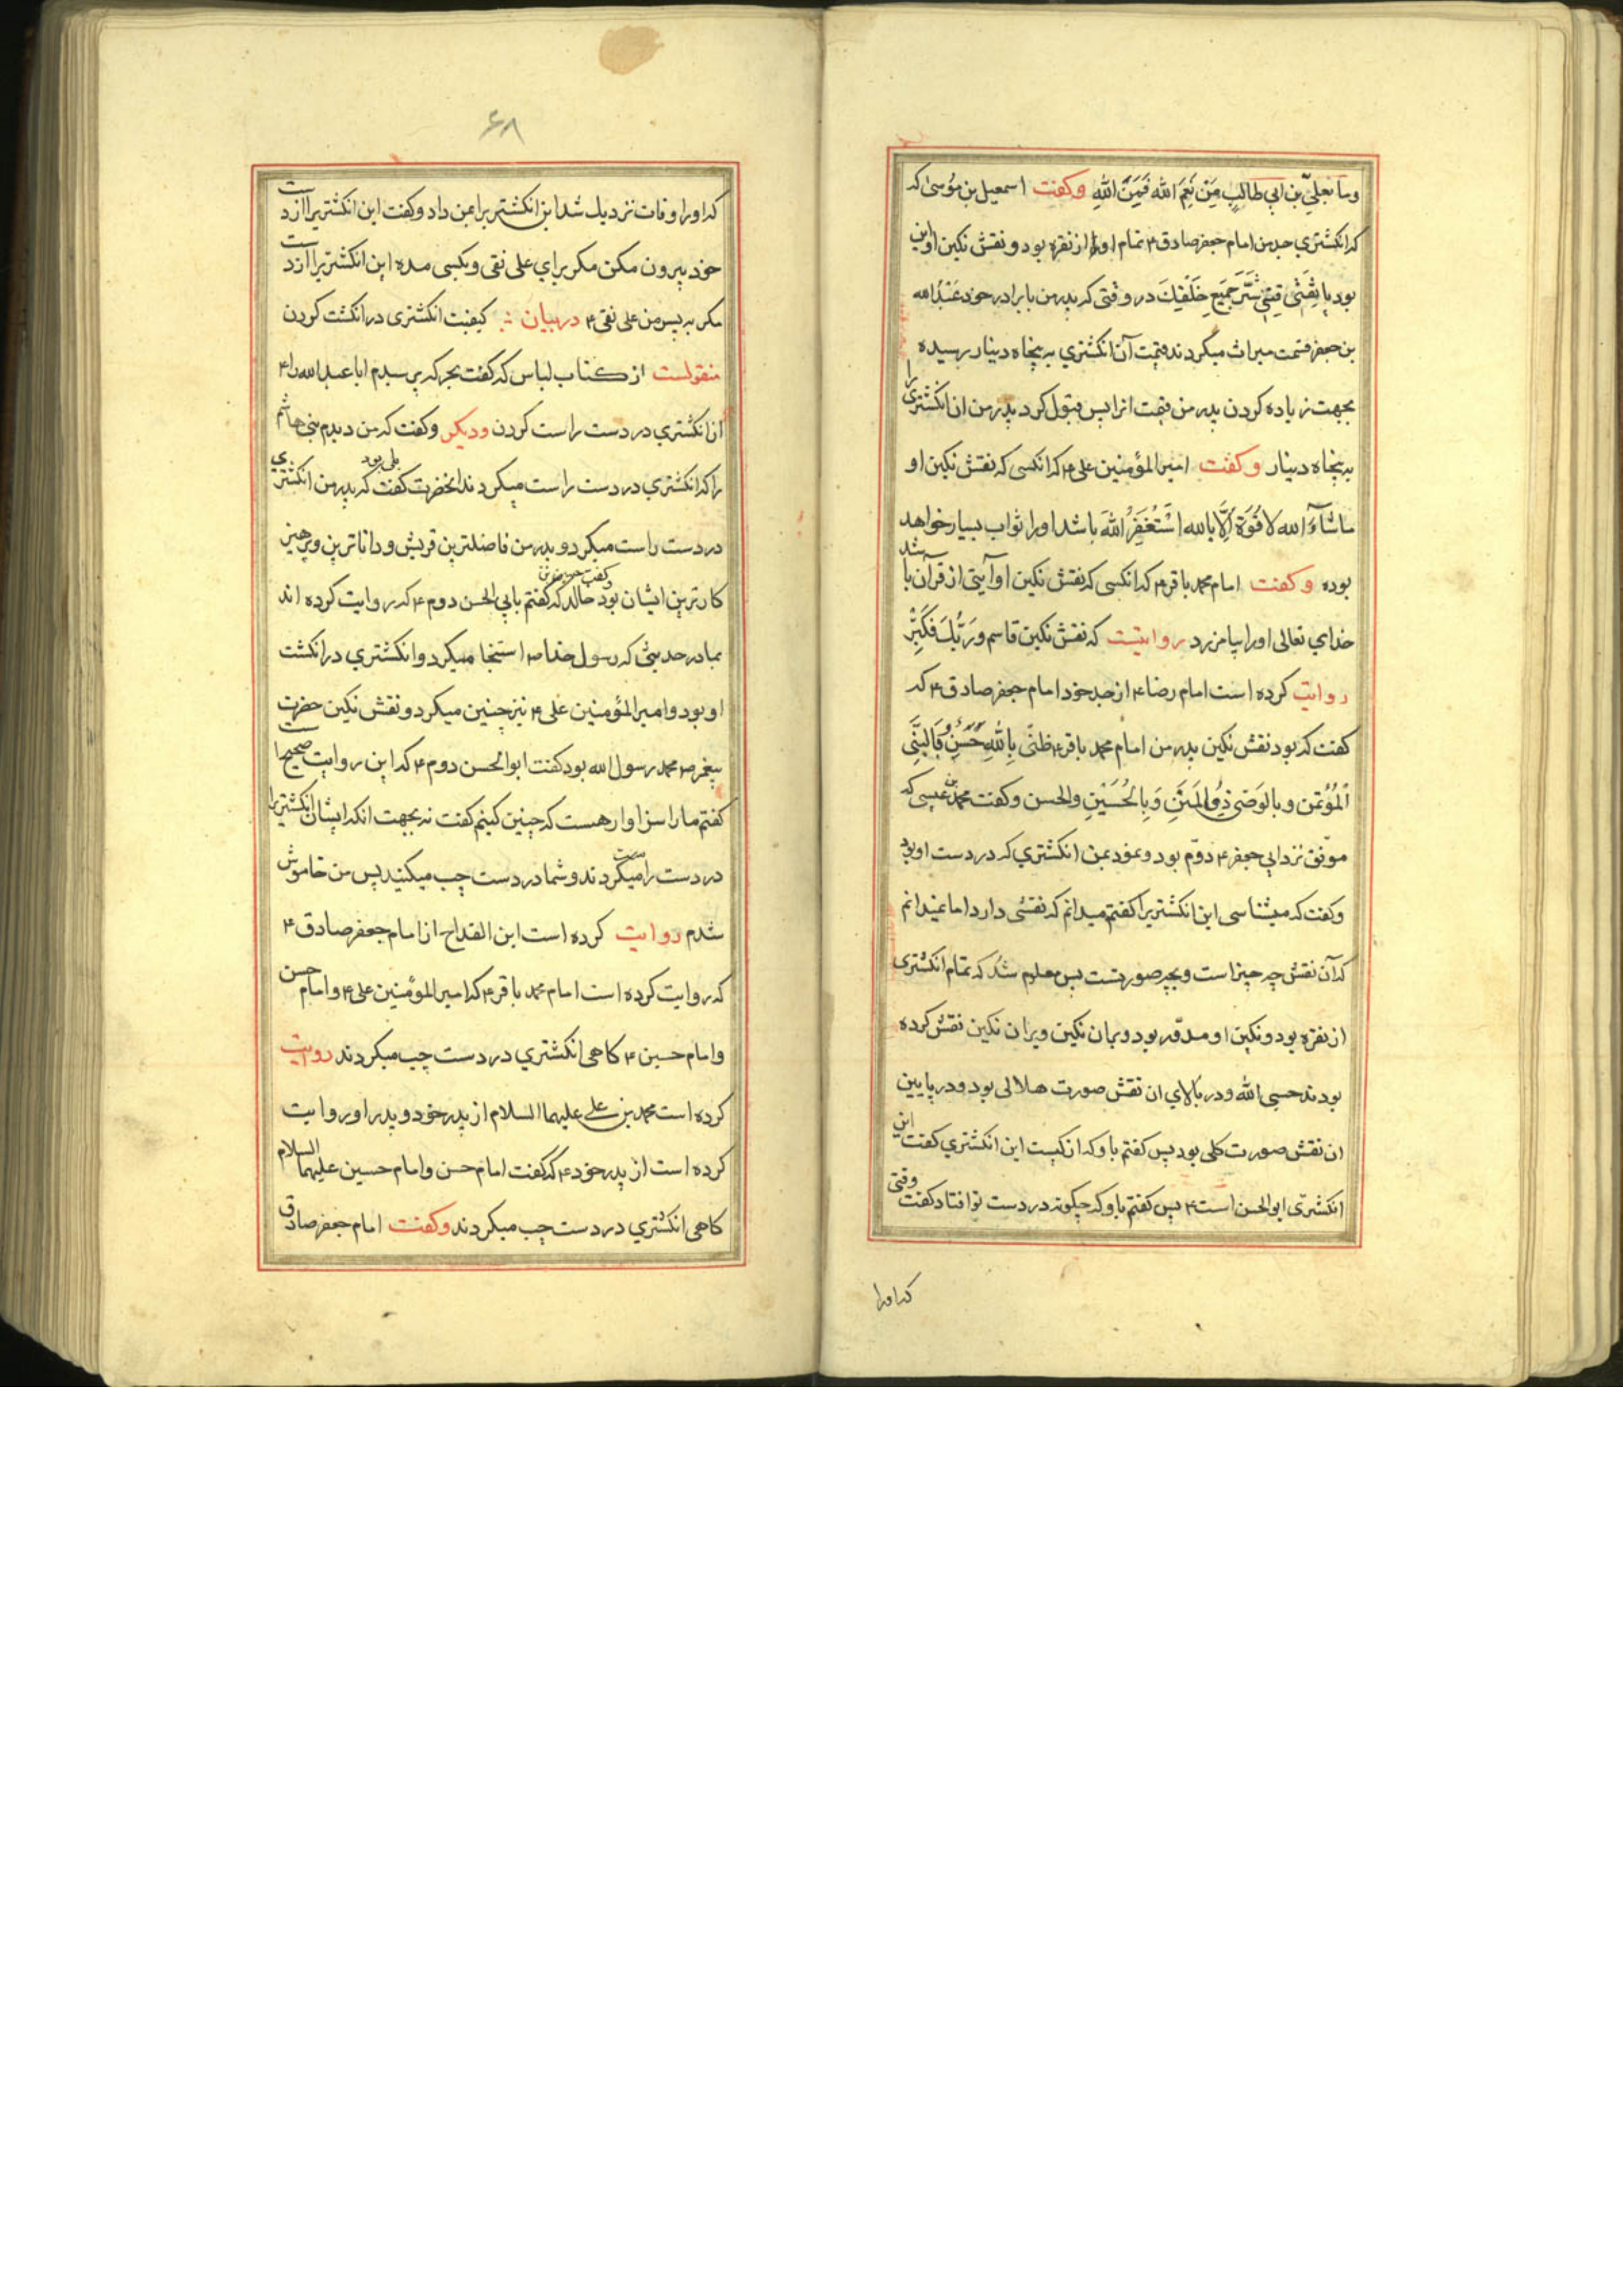 وما بعلیّ بن ابی طالب مَِن نِعَمَ الله فَمِنَ اللهِ وکفت اسمعیل بن مؤسی که
که انکشتری جد من امام جعفر صادق ۴ تمام او از نقره بود و نقش نکین او این
بود یا ثِقَتی قِنِی شَرَّ جَمیَعِ خَلقِكَ در وقتی که پدر من با برادر خود عَبْدُ الله
بن جعفر قسمت میراث میکردند قیمت آن انکشتری به پنجاه دینار رسیده
بجهت زیاده کردن پدر من قیمت انرا پس قبول کرد پدر من ان انکشتری را
به پنجاه دینار وکفت امیر المؤمنین علی ۴ که انکسی که نقش نکین او
ماشآءَ الله لا قُوَةَ اِلَّا بالله اَسْتَغْفِرُ اللهَ باشد اورا ثواب بسیار خواهد
بوده وکفت امام محمد باقر ۴ که انکسی که نقش نکین او آیتی از قرآن باشد
خدای تعالی اورا بیامرزد روایتست که نقش نکین قاسم وَرَبُّكَ فَکَبِّرْ
روایت کرده است امام رضا ۴ از جد خود امام جعفر صادق ۴ که
کفت که بود نقش نکین پدر من امام محمد باقر ۴ ظنّی بِاللهِ حَسَنٌ وَ بِالنَّبِّی
اْلمُؤْتَمن و بالوَصّی ذِی المِنَنِ وَبِالحُسَیْنِ والحسن وکفت محمد بن عیسی که
موفق نزد ابی جعفر ۴ دوّم بود و نمود بمن انکشتری که در دست او بود
وکفت که میشناسی این انکشتریرا کفتم میدانم که نقشی دارد اما نمیدانم
که آن نقش چه چیز است و بچه صورتست پس معلوم شد که تمام انکشتری
از نقره بود و نکین او مدوّر بود و بران نکین ویران نکین نقش کرده
بودند حسبی الله و در بالای ان نقش صورت هلالی بود و در پایین
ان نقش صورت کلی بود پس کفتم باو که از کیست این انکشتری کفت این
انکشتری ابوالحسن است ۴ پس کفتم باو که چکونه در دست تو افتاد کفت وقتی
که اورا
۶۸
که اورا وفات نزدیك شد این انکشتریرا بمن داد وکفت این انکشتریرا از دست
خود بیرون مکن مکر برای علی نقی وبکسی مده این انکشتریرا از دست
مکر به پسر من علی نقی ۴ در بیان کیفیت انکشتری در انکشت کردن
منقولست از کتاب لباس که کفت بحر که پرسیدم ابا عبدالله را ۴
از انکشتری در دست راست کردن ودیکر وکفت که من دیدم بنی هاشم
را که انکشتری در دست راست میکردند انحضرت کفت که بلی بود پدر من انکشتری
در دست راست میکرد و پدر من فاضلترین قریش و داناترین و پرهیز
کارترین ایشان بود وکفت حسین بن خالد که کفتم بابی الحسن دوم ۴ که روایت کرده اند
بما در حدیثی که رسول خدا ص استنجا میکرد و انکشتری در انکشت
او بود و امیر المؤمنین علی ۴ نیز چنین میکرد و نقش نکین حضرت
پیغمبر ص محمد رسول الله بود کفت ابوالحسن دوم ۴ که این روایت صحیحست
کفتم ما را سزاوار هست که چنین کنیم کفت نه بجهت انکه ایشان انکشتریرا
در دست راست میکردند و شما در دست چپ میکنید پس من خاموش
شدم روایت کرده است ابن القداح از امام جعفر صادق ۴
که روایت کرده است امام محمد باقر ۴ که امیر المؤمنین علی ۴ و امام حسن
و امام حسین ۴ کاهی انکشتری در دست چپ میکردند روایت
کرده است محمد بن علی علیهما السلام از پدر خود و پدر او روایت
کرده است از پدر خود ۴ که کفت امام حسن و امام حسین علیهما السلام
کاهی انکشتری در دست چپ میکردند وکفت امام جعفر صادق